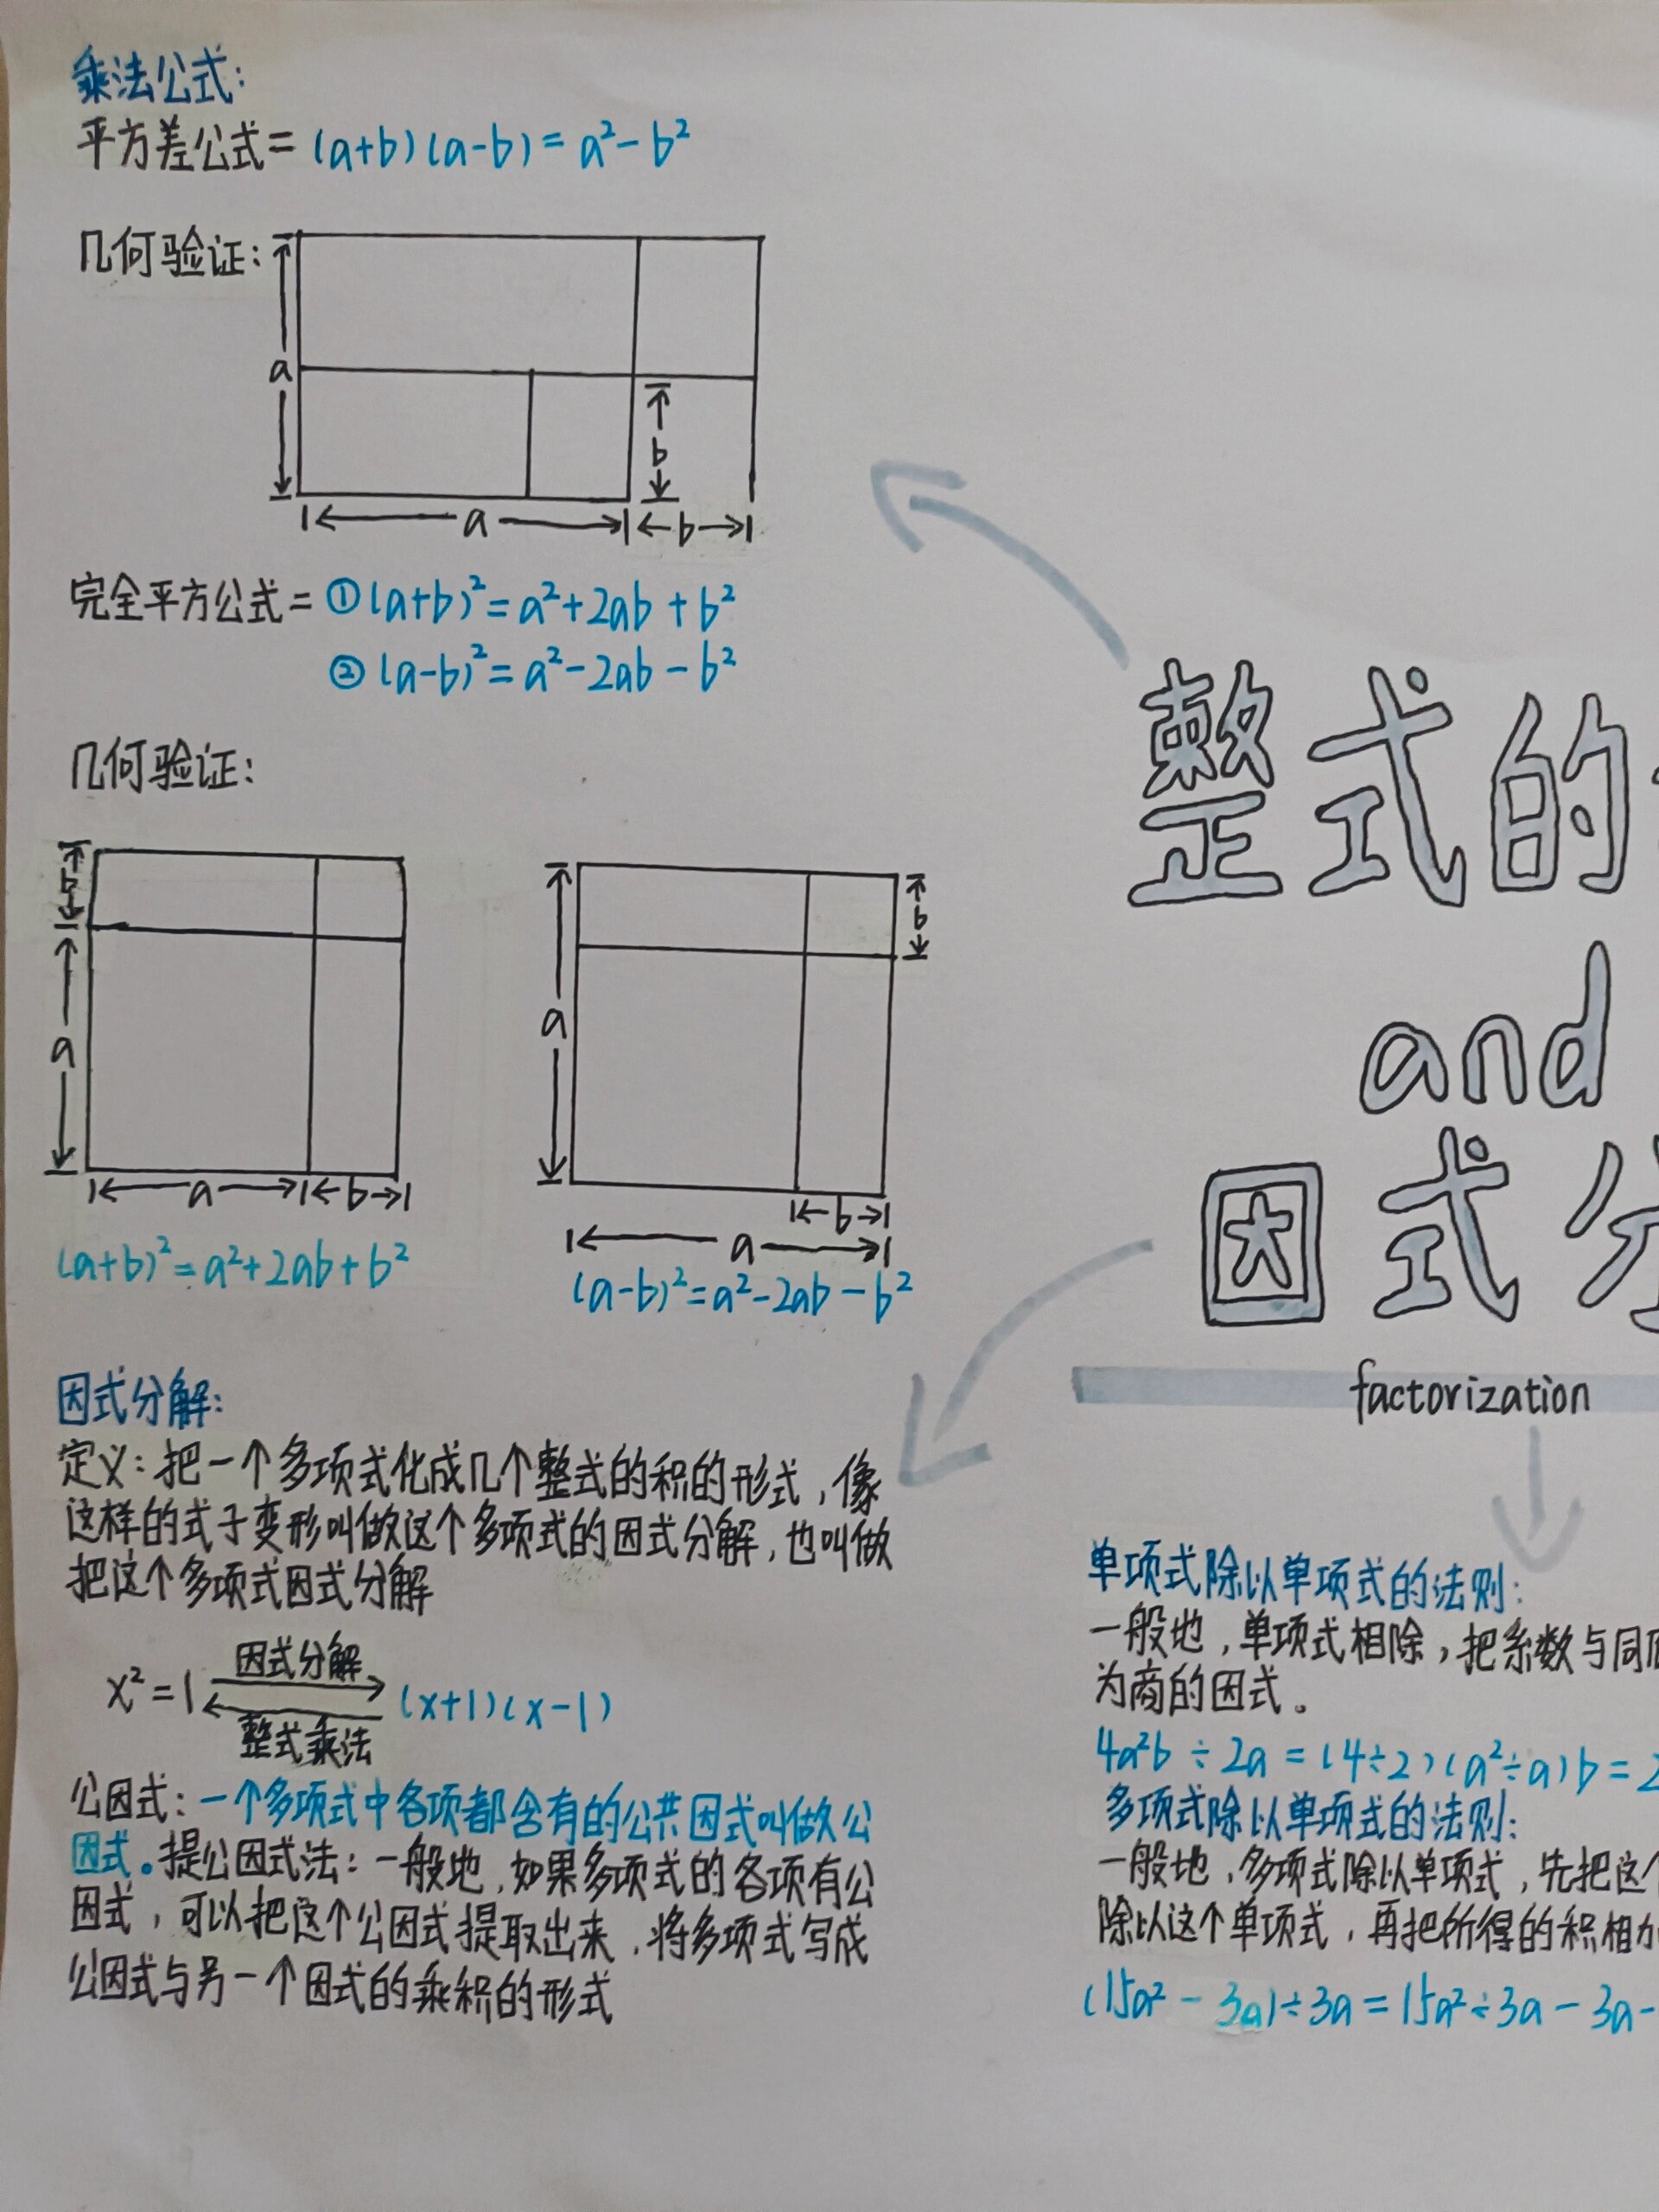 乘法公式:
平方差公式=(a+b)(a-b)=a²-b²
几何验证:
a
b
a
b
完全平方公式=①(a+b)²=a²+2ab+b²
②(a-b)²=a²-2ab-b²
几何验证:
b
a
a
b
(a+b)²=a²+2ab+b²
a
b
b
a
(a-b)²=a²-2ab-b²
因式分解:
定义:把一个多项式化成几个整式的积的形式,像
这样的式子变形叫做这个多项式的因式分解,也叫做
把这个多项式因式分解
因式分解
x²=1
(x+1)(x-1)
整式乘法
公因式:一个多项式中各项都含有的公共因式叫做公
因式。提公因式法:一般地,如果多项式的各项有公
因式,可以把这个公因式提取出来,将多项式写成
公因式与另一个因式的乘积的形式
整式的
and
因式分
factorization
单项式除以单项式的法则:
一般地,单项式相除,把系数与同
为商的因式。
4a²b÷2a=(4÷2)(a²÷a)b=2
多项式除以单项式的法则:
一般地,多项式除以单项式,先把这个
除以这个单项式,再把所得的积相加
(15a²-3a)÷3a=15a²÷3a-3a-